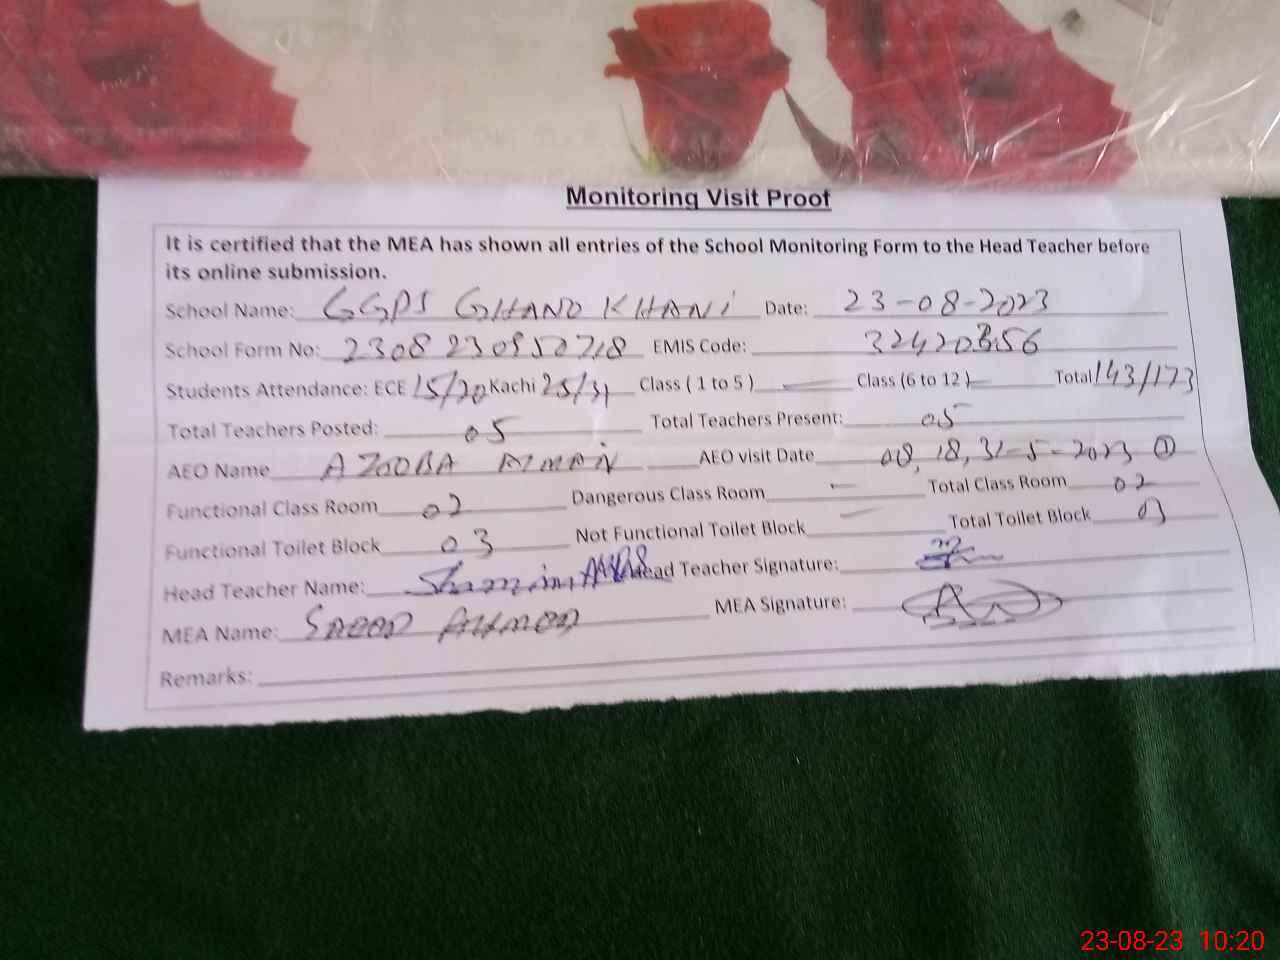 Monitoring Visit Proof
It is certified that the MEA has shown all entries of the School Monitoring Form to the Head Teacher before
its online submission.
School Name: GGPS GHANO KHANi Date: 23-08-2023
School Form No: EMIS Code:
Students Attendance: ECE 15/20 Kachi 25/31 Class ( 1 to 5 ) — Class (6 to 12 ) — Total 143/173
Total Teachers Posted: 05 Total Teachers Present: 05
AEO Name AEO visit Date 08, 18, 31-5-2023 ①
Functional Class Room 02 Dangerous Class Room — Total Class Room 02
Functional Toilet Block 03 Not Functional Toilet Block — Total Toilet Block 03
Head Teacher Name: Head Teacher Signature:
MEA Name: SAEED AHMED MEA Signature:
Remarks:
23-08-23 10:20